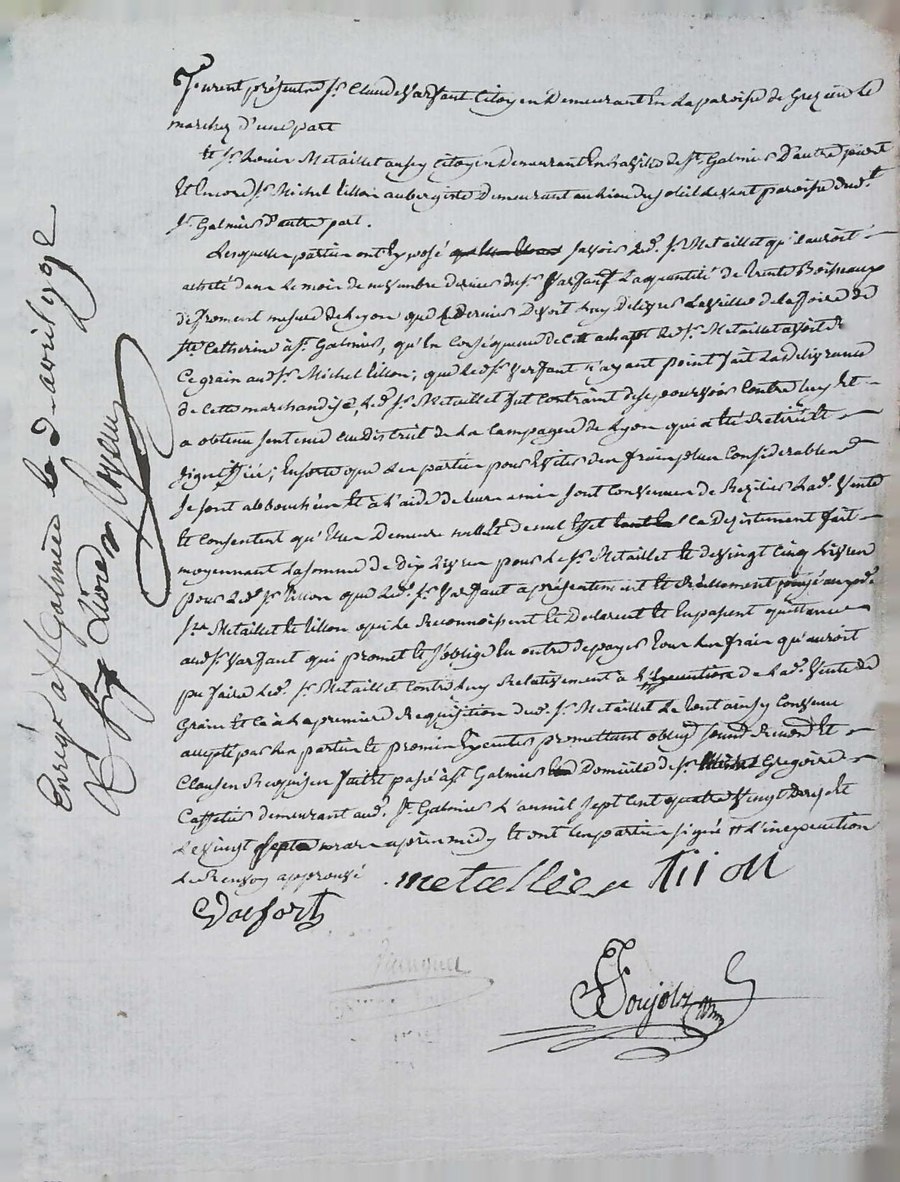 furent présents Sr. Claude Varfaut Citoyen Demeurant En La paroisse de Grezieu Le
marchez d'une part
Et Sr. Metaillet aussy Citoyen demeurant En La Ville de St. Galmier D'autre part
Et Encore Sr. Michel tillon aubergiste Demeurant au lieu du soleil Levant paroisse dud.t
St. Galmier d'autre part.
Lesquelles parties ont Exposé savoir Led. Sr. Metaillet qu'il auroit
achété dans Le mois de novembre dernier du Sr. Varfaut La quantité de trente Boisseaux
de froment mesure de Lyon que Ce dernier Devoit Luy Délivrer La veille de La foire de
Ste Catherine à St. Galmier, qu'En Conséquence de Cet achapt Led. Sr. Metaillet
Ce grain aud. Sr. Michel tillon; que Led. Sr. Varfaut n'ayant point fait La délivrance
de Cette marchandise, Led. Sr. Metaillet fut Contraint de se pourvoir Contre Luy Et
a obtenu sentence au district de La Campagne de Lyon qui a été Et
signiffiée; Ensorte que Les parties pour Eviter des fraix plus Considerables
se sont abbouchés Et à L'aide de leurs amis sont Convenus de Resilier Lad. Vente
Et Consentent qu'Elle Demeure nulle Et de nul Effet Ce Desistement fait
moyennant La somme de Dix Livres pour Le Sr. Metaillet Et de Vingt Cinq Livres
pour Led. Sr. tillon que Led. Sr. Varfaut a présentement Et Réellement payé auxd.
Srs. Metaillet Et tillon qui Le Reconnoissent Et Declarent Et En passent quittance
aud. Sr. Varfaut qui promet Et s'oblige En outre de payer tous Les fraix qu'auroit
pu faire Led. Sr. Metaillet Contre Luy Relativement à de Lad. Vente de
Grain Et Ca à La premiere Requisition dud. Sr. Metaillet Le tout ainsy Convenu
accepté par Les parties Et promis Executer promettant oblig. soumd. Renond. Et
Clauses Requises fait Et passé à St. Galmier Domicile de Sr. Gregoire
Caffetier demeurant aud. St. Galmier L'an mil sept cent quatre Vingt Douze Et
Le Vingt mars après midy Et ont Les parties signé
approuvé
metallier tillon
Varfort
Poujolz
Enregé. à St Galmier le avril 1792